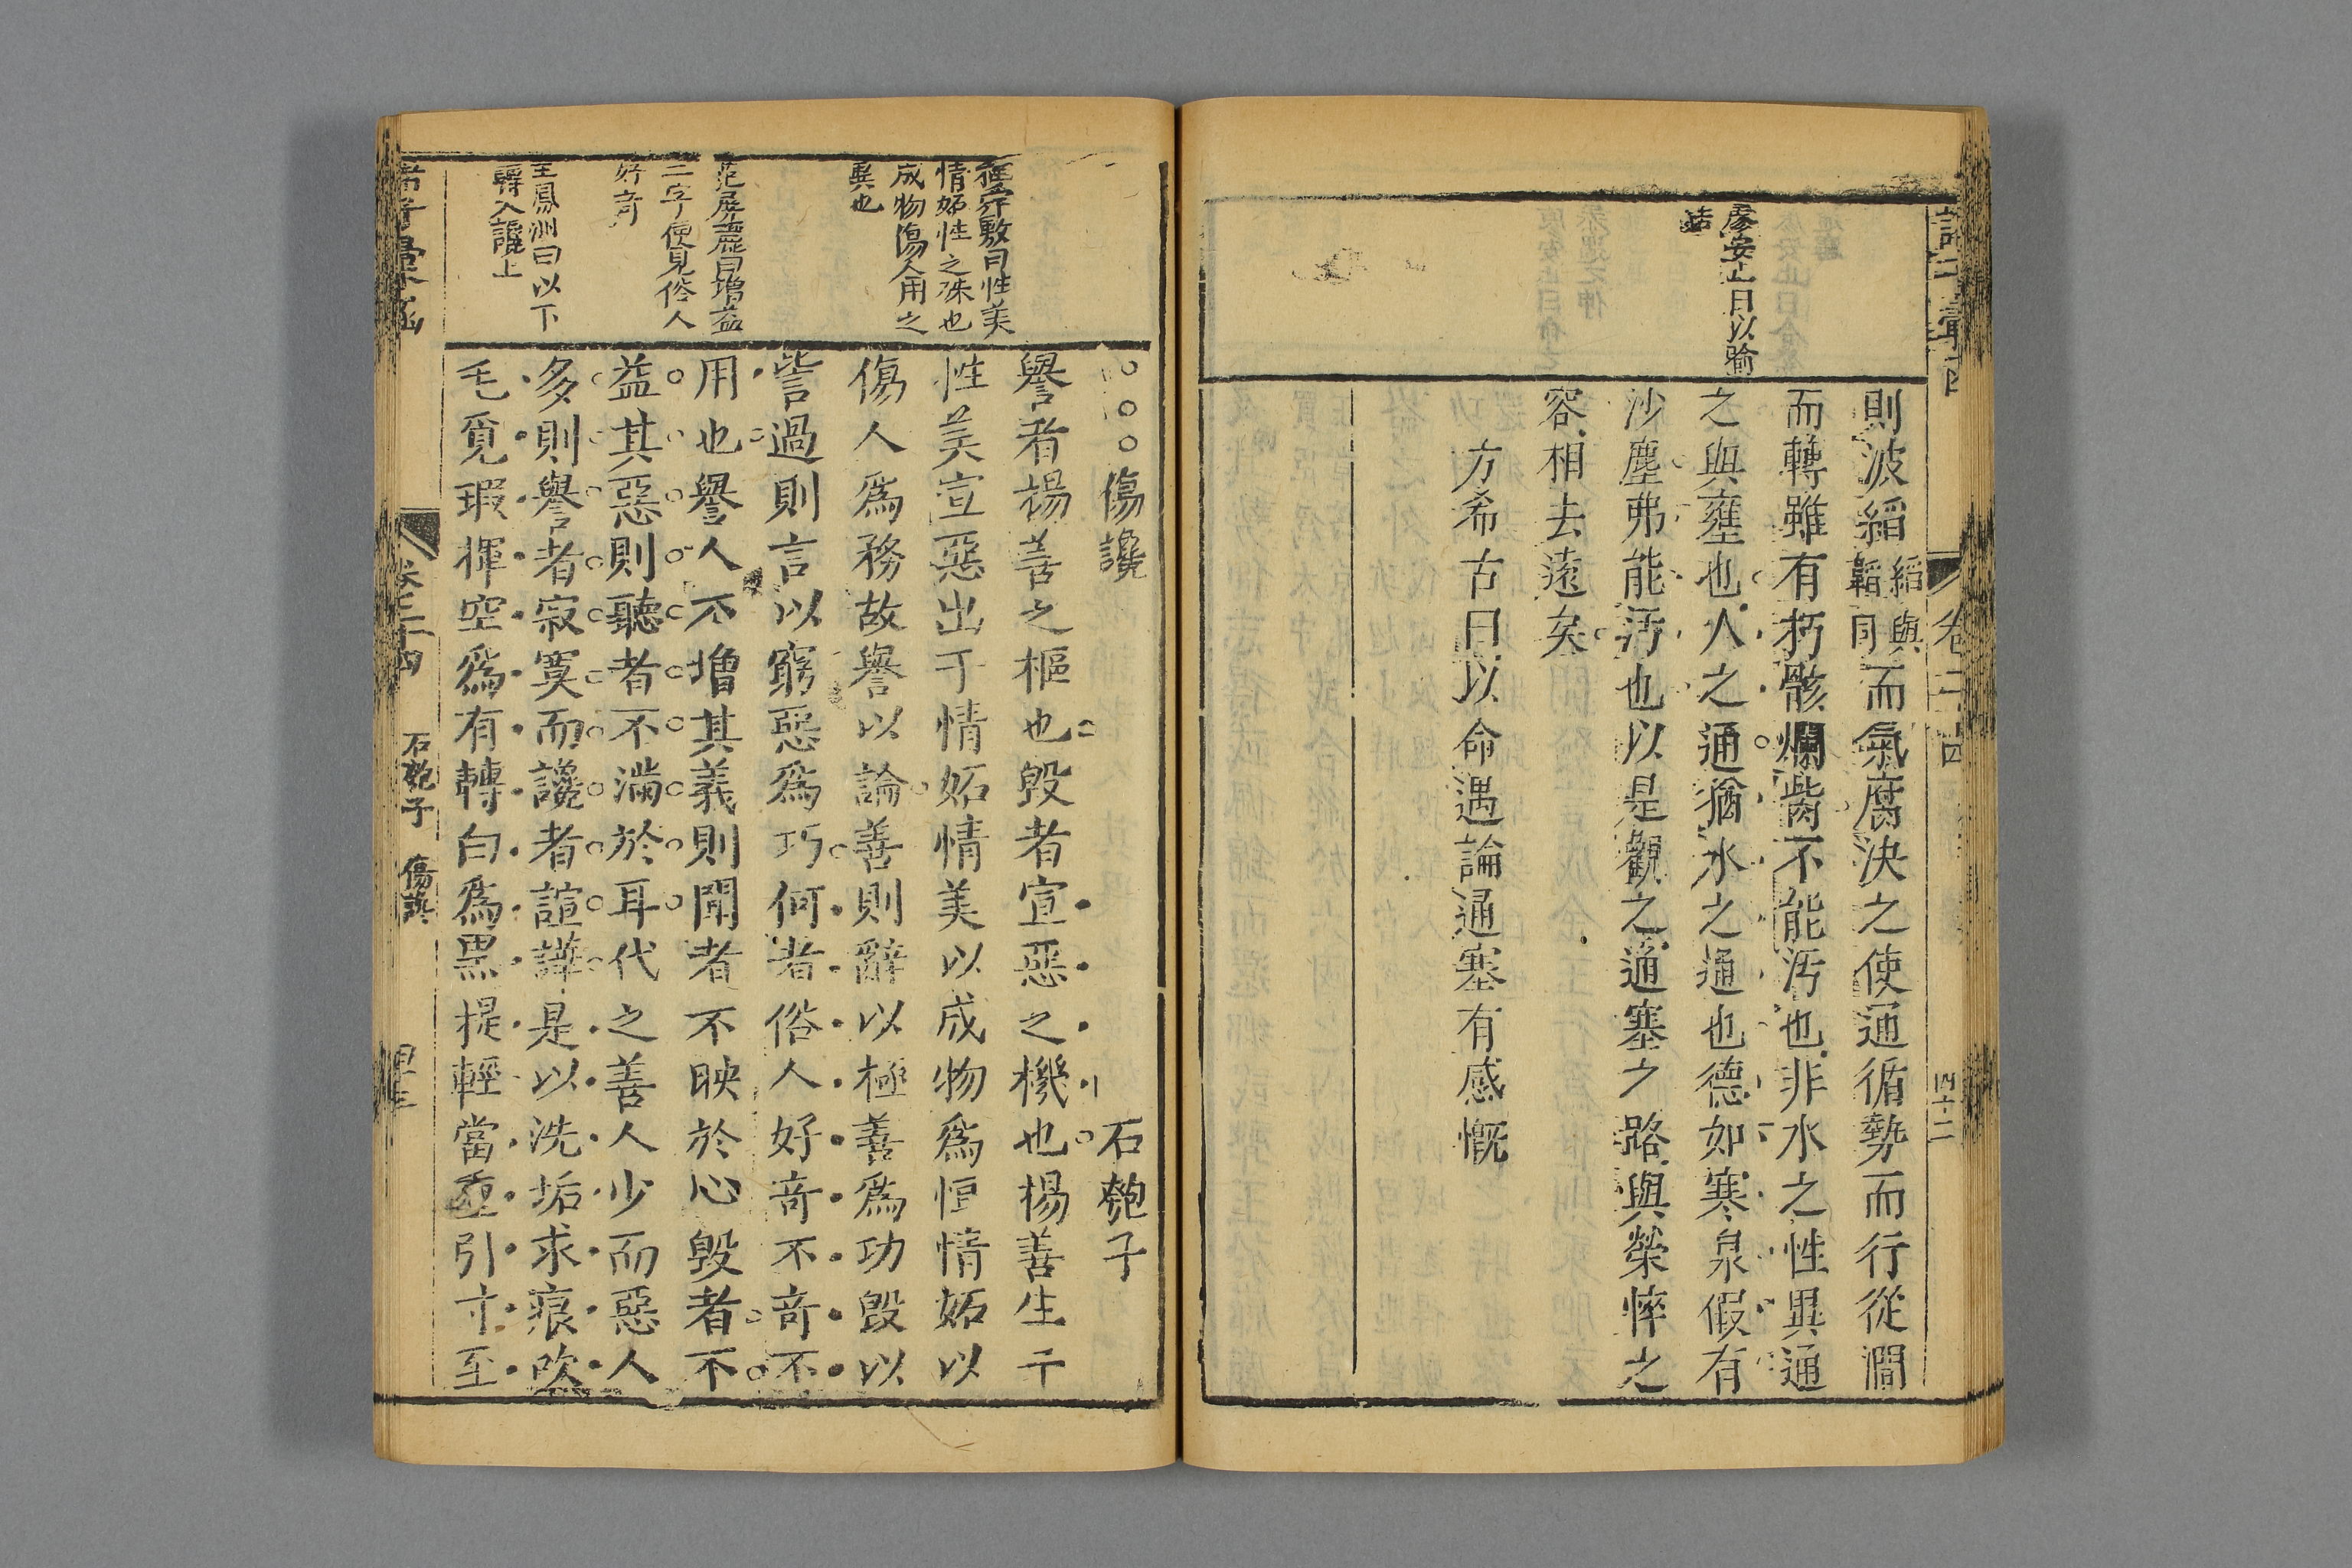 卷二十四
四十二
廖安止曰以喻
結
則波縚縚與韜同而氣腐決之使通循勢而行從澗
而轉雖有朽骸爛胔不能汚也非水之性異通
之與壅也人之通猶水之通也德如寒泉假有
沙塵弗能汚也以是觀之通塞之路與榮悴之
容相去遠矣
方希古曰以命遇論通塞有感慨
曰性美
情妬性之殊也
成物傷人用之
異也
范屏麓曰增益
二字便見俗人
好竒
王鳳洲曰以下
轉入讒上
傷讒 石匏子
譽者揚善之樞也毀者宣惡之機也揚善生于
性美宣惡出于情妬情美以成物爲恒情妬以
傷人爲務故譽以論善則辭以極善爲功毀以
訾過則言以窮惡爲巧何者俗人好竒不竒不
用也譽人不增其義則聞者不映於心毀者不
益其惡則聽者不滿於耳代之善人少而惡人
多則譽者寂寞而讒者諠譁是以洗垢求痕吹
毛覓瑕揮空爲有轉白爲黒提輕當重引寸至
諸子彙函
卷二十四
石匏子
傷讒